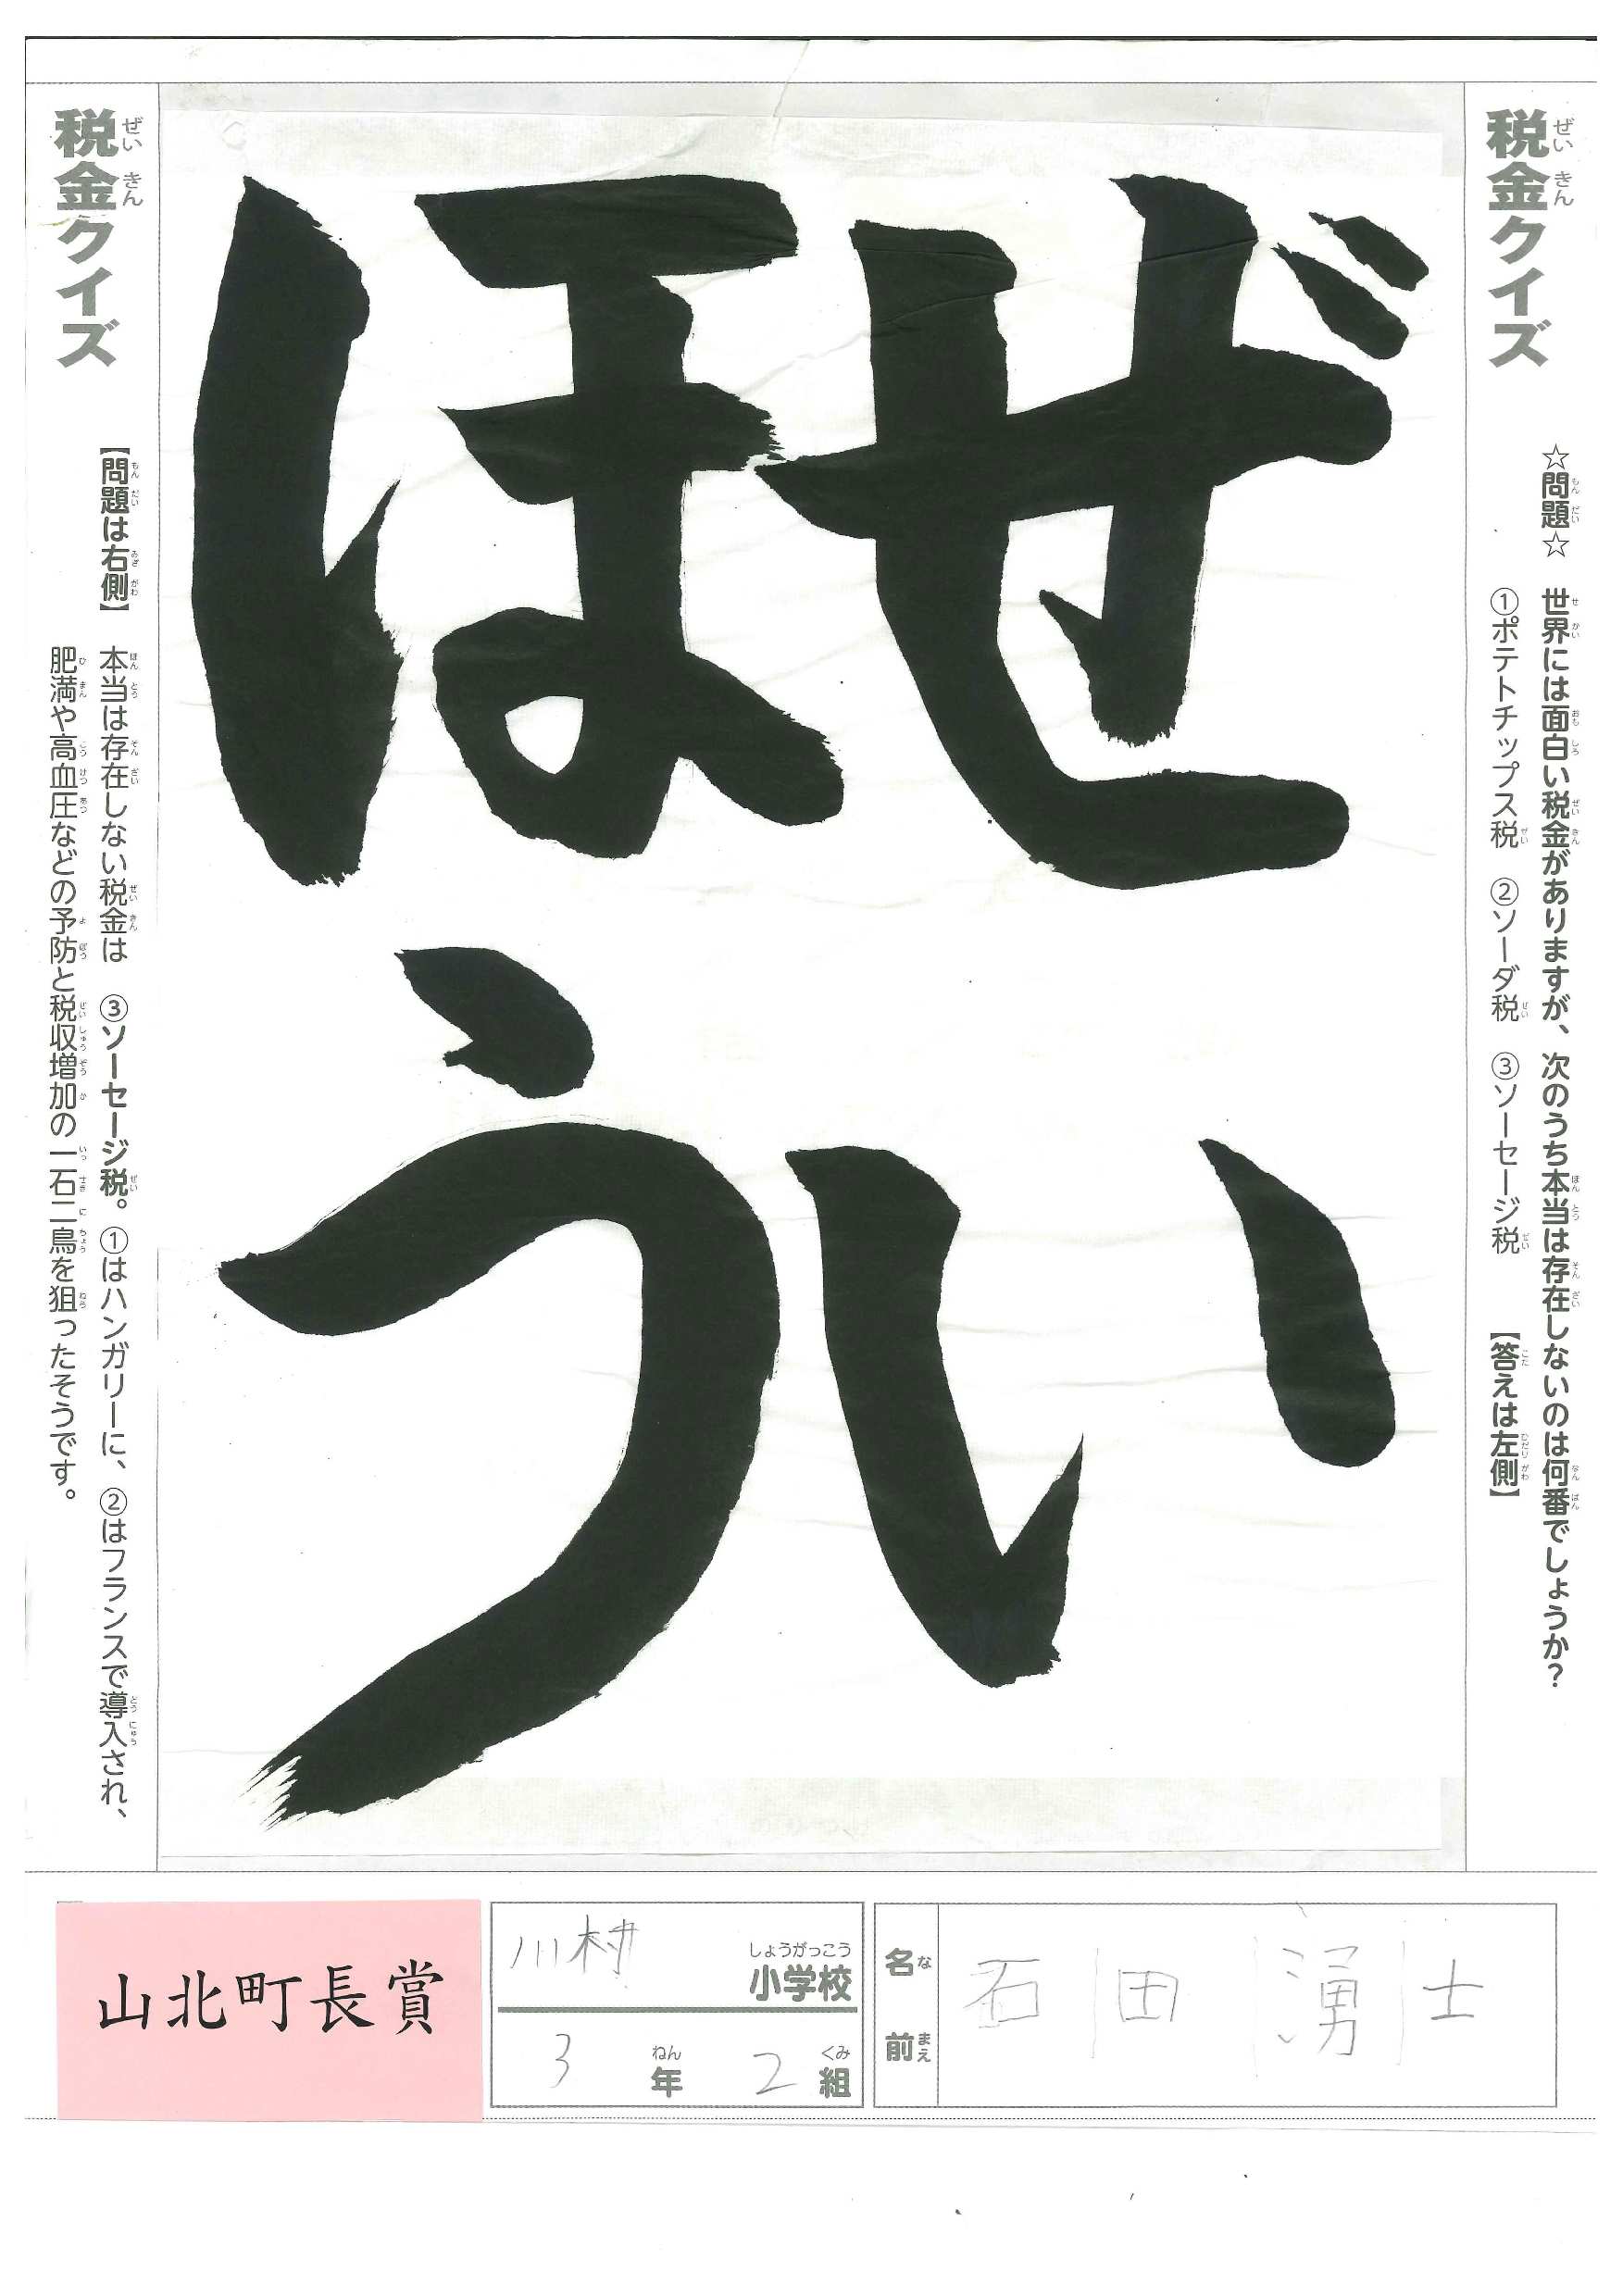 税金クイズ
☆問題☆ 世界には面白い税金がありますが、次のうち本当は存在しないのは何番でしょうか？
①ポテトチップス税 ②ソーダ税 ③ソーセージ税 【答えは左側】
ぜい
ほう
税金クイズ
【問題は右側】 本当は存在しない税金は ③ソーセージ税。①はハンガリーに、②はフランスで導入され、
肥満や高血圧などの予防と税収増加の一石二鳥を狙ったそうです。
山北町長賞
川村 小学校
3年 2組
名前 石田湧士